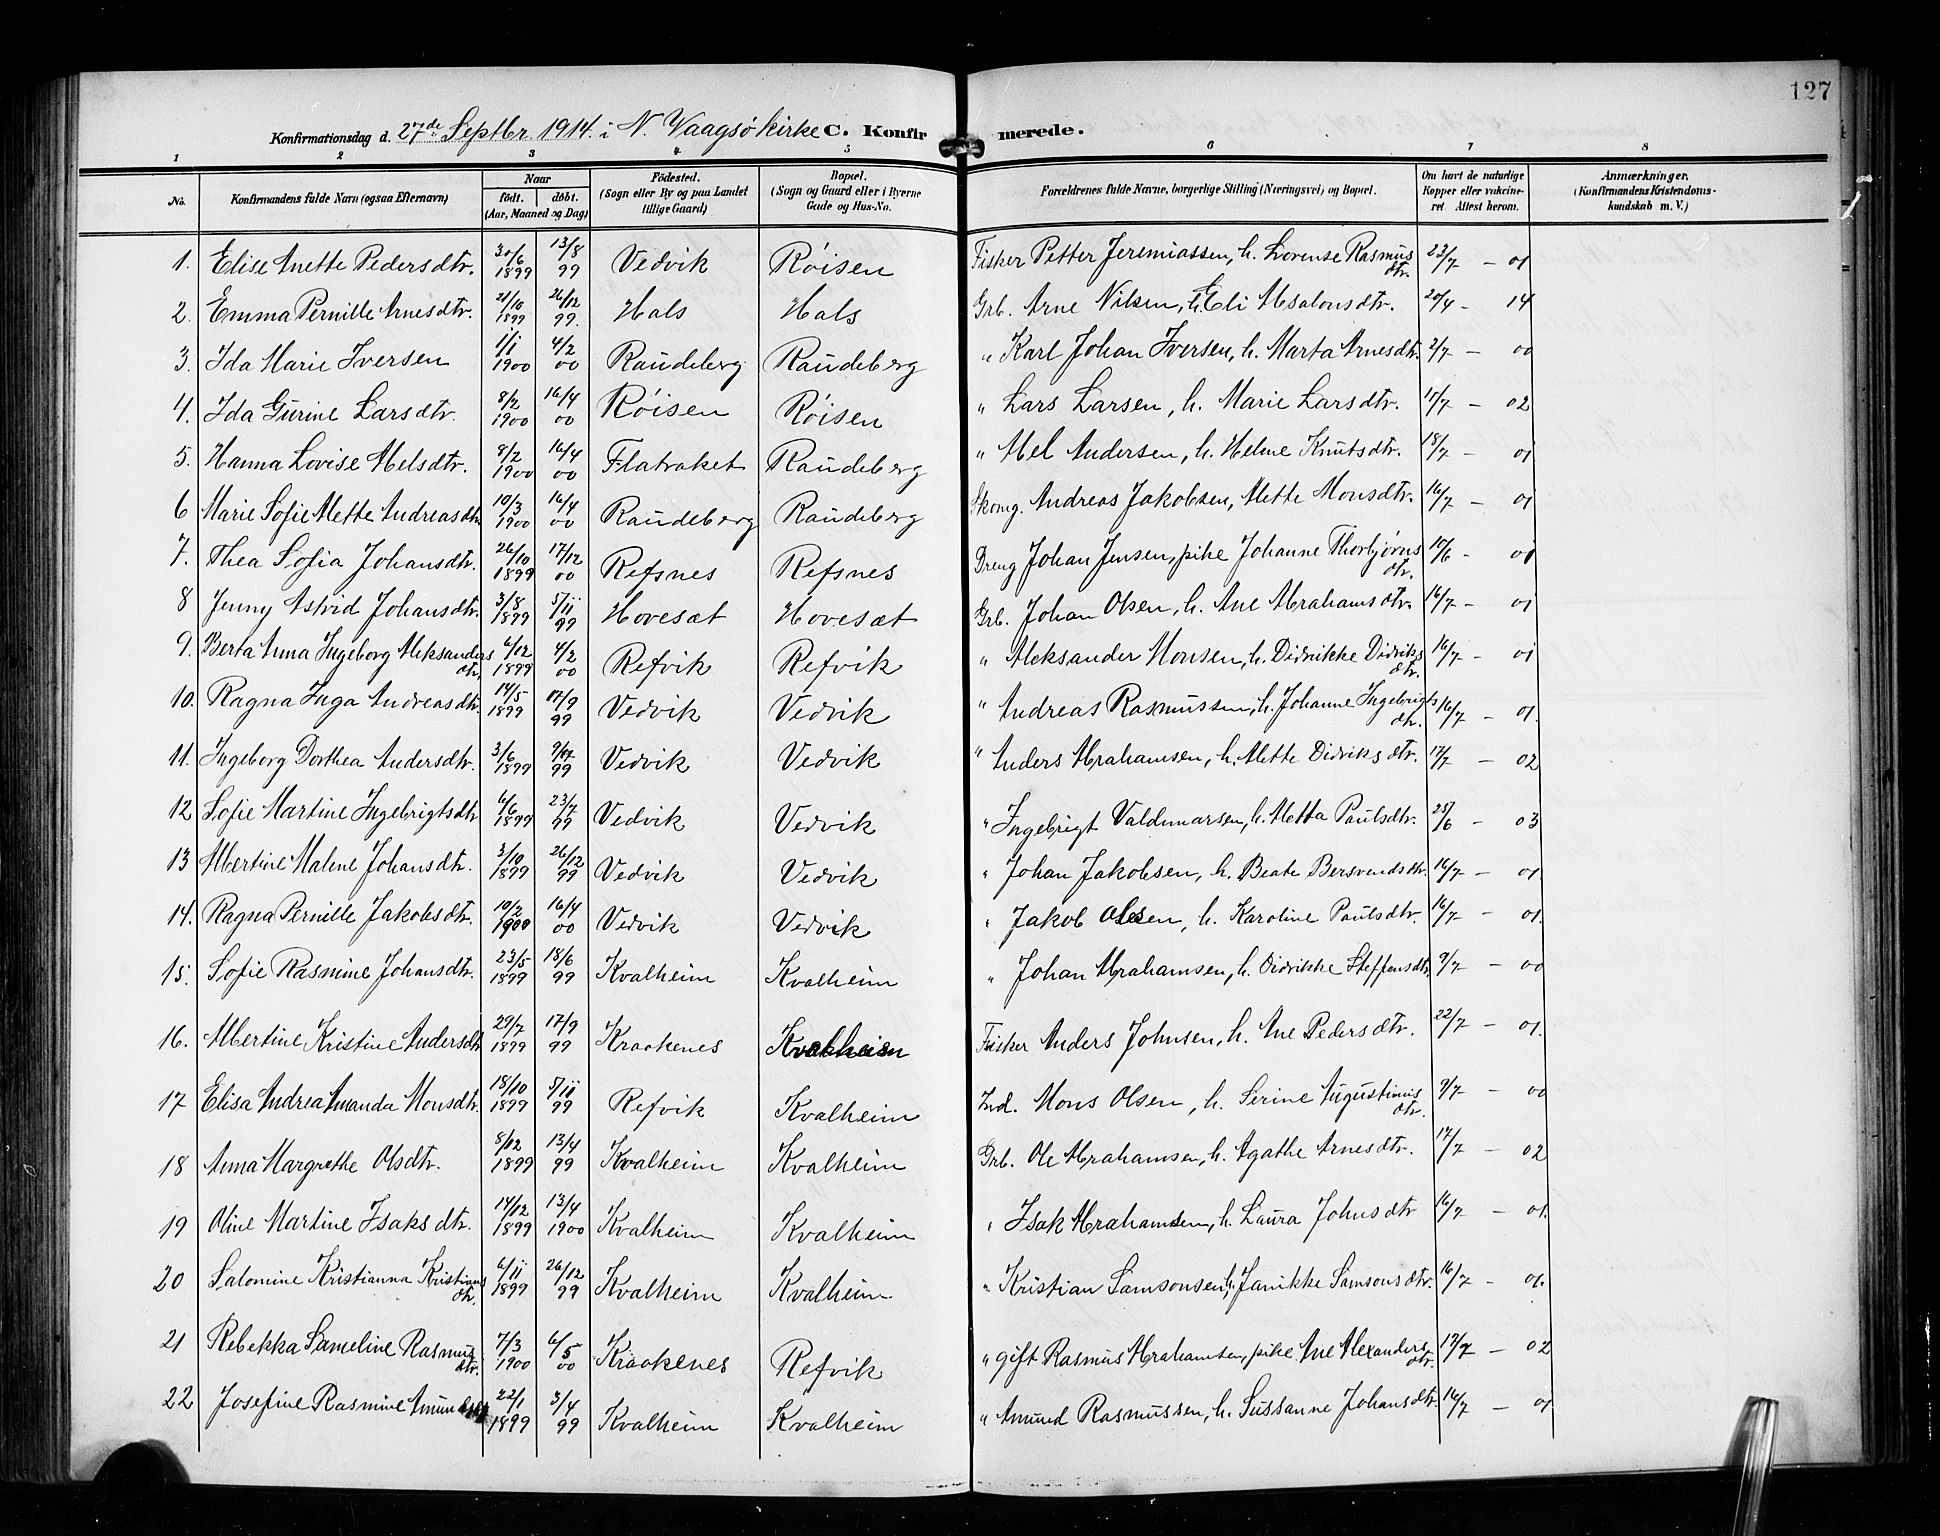 127
Konfirmationsdag d. 27de Septbr. 1914 i N. Vaagsø kirke C. Konfirmerede.
1 2 3 4 5 6 7 8
No. Konfirmandens fulde Navn (ogsaa Efternavn) Naar født. døbt. (Aar, Maaned og Dag) Fødested. (Sogn eller By og paa Landet tillige Gaard) Bopæl. (Sogn og Gaard eller i Byerne Gade og Hus-No. Forældrenes fulde Navne, borgerlige Stilling (Næringsvei) og Bopæl. Om havt de naturlige Kopper eller vakcineret Attest herom. Anmærkninger. (Konfirmandens Kristendomskundskab m. V.)
1. Elise Anette Pedersdtr. 30/6 1899 13/8 99 Vedvik Røisen Fisker Petter Jeremiassen, h. Lorense Rasmusdtr. 23/7 - 01
2. Emma Pernille Arnesdtr. 21/10 1899 26/12 99. Hals Hals Grb. Arne Nilsen, h. Eli Absalonsdtr. 20/4 - 14
3. Ida Marie Iversen 1/1 1900 4/2 00 Raudeberg Raudeberg " Karl Johan Iversen, h. Marta Arnesdtr. 2/7 - 00
4. Ida Gurine Larsdtr. 8/2 1900 16/4 00 Røisen Røisen " Lars Larsen, h. Marie Larsdtr. 17/7 - 02
5. Hanna Lovise Abelsdtr. 8/2 1900 16/4 00 Flatraket Raudeberg " Abel Andersen, h. Helene Knutsdtr. 18/7 - 01
6 Marie Sofie Mette Andreasdtr. 10/3 1900 16/4 00 Raudeberg Raudeberg Skomg. Andreas Jakobsen, Mette Monsdtr. 16/7 - 01
7. Thea Sofia Johansdtr. 26/10 1899 17/12 00 Refsnes Refsnes Dreng Johan Jensen, pike Johanne Thorbjørnsdtr. 10/6 - 01
8 Jenny Astrid Johansdtr. 3/8 1899 5/11 99 Hovesæt Hovesæt Grb. Johan Olsen, h. Ane Abrahamsdtr. 16/7 - 01
9. Berta Anna Ingeborg Aleksandersdtr. 6/12 1899 4/2 00 Refvik Refvik " Aleksander Monsen, h. Didrikke Didriksdtr. 16/7 - 01
10. Ragna Inga Andreasdtr. 14/5 1899 17/9 99 Vedvik Vedvik " Andreas Rasmussen, h. Johanne Ingebrigtsdtr. 16/7 - 01.
11. Ingeborg Dorthea Andersdtr. 3/6 1899 99 Vedvik Vedvik " Anders Abrahamsen, h. Mette Didriksdtr. 17/7 - 02
12 Sofie Martine Ingebrigtsdtr 6/6 1899 23/7 99 Vedvik Vedvik " Ingebrigt Valdemarsen, h. Metta Paulsdtr. 25/6 - 03
13 Albertine Malene Johansdtr. 3/10 1899 26/12 99 Vedvik Vedvik " Johan Jakobsen, h. Beate Bersvendsdtr. 16/7 - 01.
14. Ragna Pernille Jakobsdtr. 10/2 1900 16/4 00 Vedvik Vedvik " Jakob Olsen, h. Karoline Paulsdtr. 16/7 - 01.
15. Sofie Rasmine Johansdtr. 23/5 1899 18/6 99 Kvalheim Kvalheim " Johan Abrahamsen, h. Didrikke Steffensdtr. 9/7 - 00
16. Albertine Kristine Andersdtr 29/7 1899 17/9 99 Kraakenes Kvalheim Fisker Anders Johnsen, h. Ane Pedersdtr. 22/7 - 01.
17 Elisa Andrea Amanda Monsdtr. 18/10 1899 5/11 99 Refvik Kvalheim Ind. Mons Olsen, h. Serine Augustinusdtr. 9/7 - 00
18 Anna Margrethe Olsdtr. 8/12 1899 13/4 99 Kvalheim Kvalheim Grb. Ole Abrahamsen, h. Agathe Arnesdtr. 17/7 - 02
19 Oline Martine Isaksdtr. 14/12 1899 13/4 1900 Kvalheim Kvalheim " Isak Abrahamsen, h. Laura Johnsdtr 16/7 - 01.
20 Salomine Kristianna Kristiansdtr. 6/11 1899 26/12 99 Kvalheim Kvalheim " Kristian Samsonsen, h. Janikke Samsonsdtr. 16/7 - 01.
21 Rebekka Sameline Rasmusdtr. 7/3 1900 6/5 00 Kraakenes Refvik " gift Rasmus Abrahamsen, pike Ane Alexandersdtr. 17/7 - 02
22 Josefine Rasmine 22/1 1899 3/4 99 Kvalheim Kvalheim " Amund Rasmussen, h. Sussanne Johansdtr. 16/7 - 01